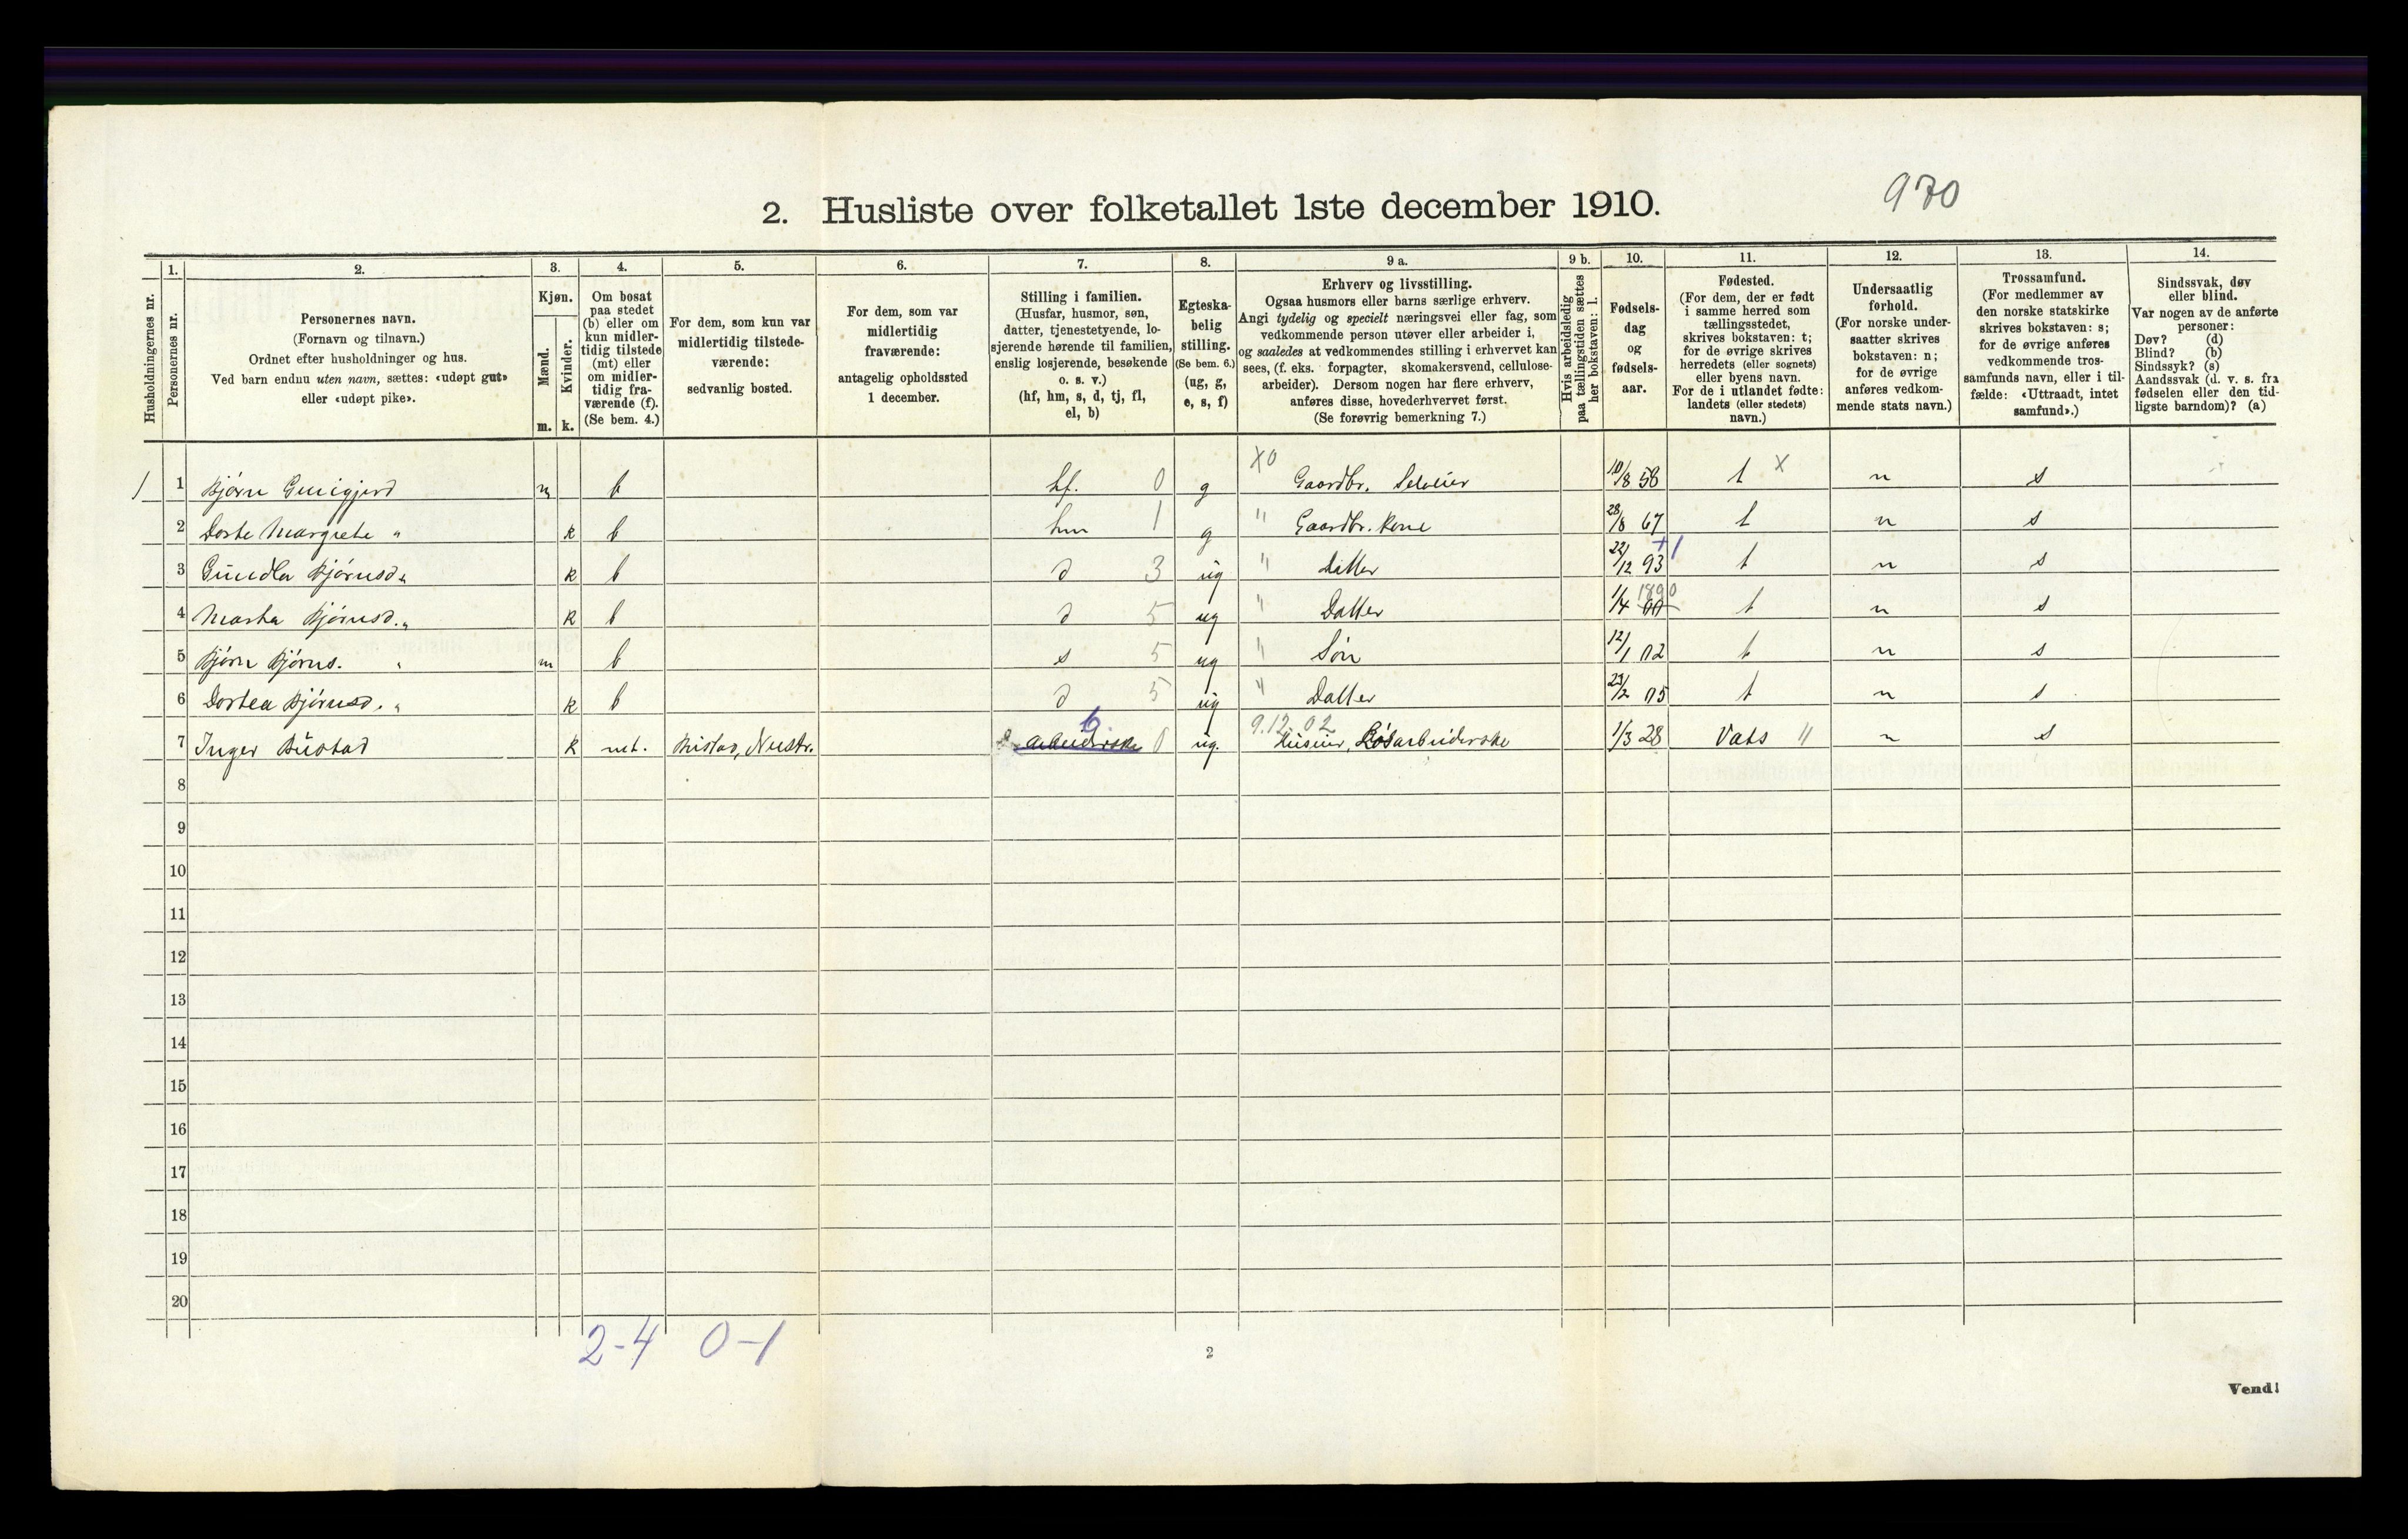 970
2. Husliste over folketallet 1ste december 1910.
Husholdningernes nr.
1.
Personernes nr.
2.
Personernes navn.
(Fornavn og tilnavn.)
Ordnet efter husholdninger og hus.
Ved barn endnu uten navn, sættes: «udøpt gut»
eller «udøpt pike».
3.
Kjøn.
Mænd.
Kvinder.
m. k.
4.
Om bosat
paa stedet
(b) eller om
kun midler-
tidig tilstede
(mt) eller
om midler-
tidig fra-
værende (f).
(Se bem. 4.)
5.
For dem, som kun var
midlertidig tilstede-
værende:
sedvanlig bosted.
6.
For dem, som var
midlertidig
fraværende:
antagelig opholdssted
1 december.
7.
Stilling i familien.
(Husfar, husmor, søn,
datter, tjenestetyende, lo-
sjerende hørende til familien,
enslig losjerende, besøkende
o. s. v.)
(hf, hm, s, d, tj, fl,
el, b)
8.
Egteska-
belig
stilling.
(Se bem. 6.)
(ug, g,
e, s, f)
9 a.
Erhverv og livsstilling.
Ogsaa husmors eller barns særlige erhverv.
Angi tydelig og specielt næringsvei eller fag, som
vedkommende person utøver eller arbeider i,
og saaledes at vedkommendes stilling i erhvervet kan
sees, (f. eks. forpagter, skomakersvend, cellulose-
arbeider). Dersom nogen har flere erhverv,
anføres disse, hovederhvervet først.
(Se forøvrig bemerkning 7.)
9 b.
Hvis arbeidsledig
paa tællingstiden sættes
her bokstaven: l.
10.
Fødsels-
dag
og
fødsels-
aar.
11.
Fødested.
(For dem, der er født
i samme herred som
tællingsstedet,
skrives bokstaven: t;
for de øvrige skrives
herredets (eller sognets)
eller byens navn.
For de i utlandet fødte:
landets (eller stedets)
navn.)
12.
Undersaatlig
forhold.
(For norske under-
saatter skrives
bokstaven: n;
for de øvrige
anføres vedkom-
mende stats navn.)
13.
Trossamfund.
(For medlemmer av
den norske statskirke
skrives bokstaven: s;
for de øvrige anføres
vedkommende tros-
samfunds navn, eller i til-
fælde: «Uttraadt, intet
samfund».)
14.
Sindssvak, døv
eller blind.
Var nogen av de anførte
personer:
Døv? (d)
Blind? (b)
Sindssyk? (s)
Aandssvak (d. v. s. fra
fødselen eller den tid-
ligste barndom)? (a)
1 1 Bjørn m b hf. 0 g X0 Gaardbr. Seleier 10/8 t X n s
2 Dorte Margrete " k b hm 1 g " Gaardbr. kone 28/8 67 t n s
3 Bjørnsd. " k b d 3 ug " Datter 22/12 93 +1 t n s
4 Marta Bjørnsd. " k b d 5 ug " Datter 1/4 00 1890 t n s
5 Bjørn Bjørns. " m b s 5 ug " Søn 12/1 02 t n s
6 Dortea Bjørnsd. " k b d 5 ug " Datter 23/2 05 t n s
7 Inger Bustad k mt. Bustad, b arbeiderske 0 ug. 9.12.02 Løsarbeiderske 1/3 28 Vats " n s
8
9
10
11
12
13
14
15
16
17
18
19
20
2-4 0-1
2
Vend!